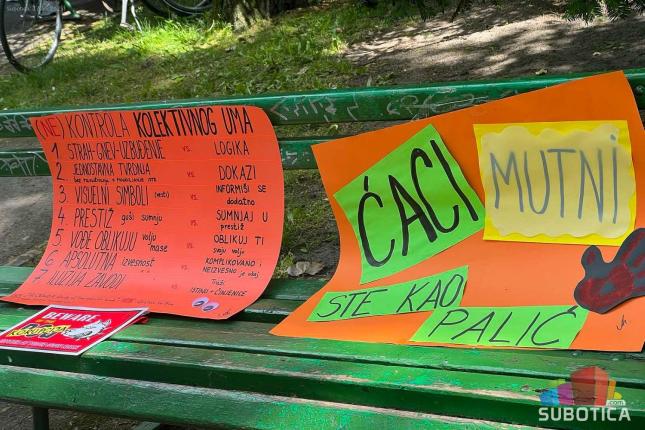 (NE) KONTROLA KOLEKTIVNOG UMA
1. STRAH-GNEV-UZBUĐENJE vs. LOGIKA
2. JEDNOSTAVNA TVRDNJA vs. DOKAZI
bez
3. VISUELNI SIMBOLI (vesti) vs. INFORMIŠI SE dodatno
4. PRESTIŽ guši sumnju vs. SUMNJAJ U prestiž
5. VOĐE OBLIKUJU volju mase vs. OBLIKUJ TI svoju volju
6 APSOLUTNA izvesnost vs. KOMPLIKOVANO i NEIZVESNO je okej
7 ILUZIJA ZAVODI vs. Traži ISTINU + ČINJENICE
BEWARE
ĆACI
MUTNI
STE KAO
PALIĆ
SUBOTICA
.com